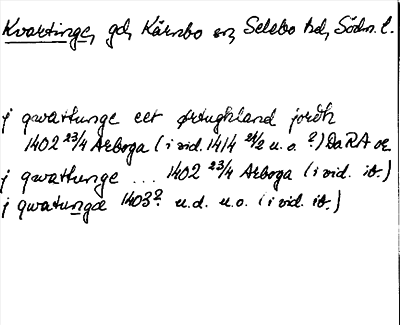 Kvartinge, gd, Kärnbo sn, Selebo hd, Södm. l.
j qwathunge eet ørtughland jordh
1402 23/4 Arboga (i vid. 1414 24/2 u.o.?) Da RA or
j qwathunge ... 1402 23/4 Arboga (i vid. ib.)
j qwatungæ 1403? u.d. u.o. (i vid. ib.)